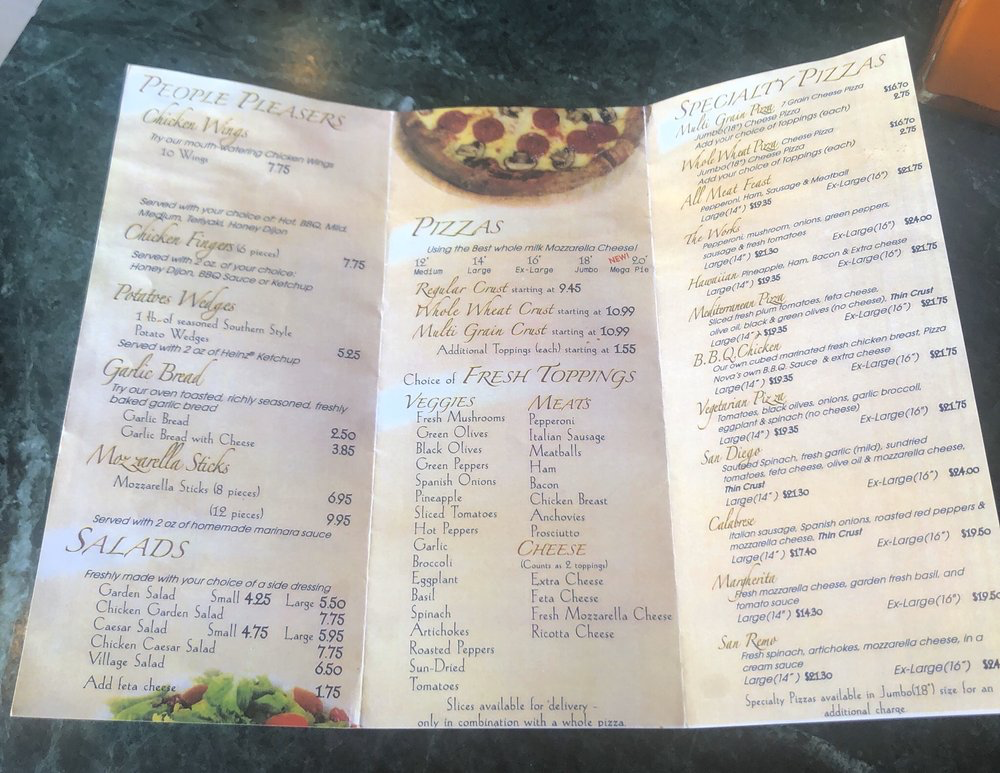 PEOPLE PLEASERS
Chicken Wings
Try our mouth-watering Chicken Wings
10 Wings 7.75
Served with your choice of: Hot, BBQ, Mild,
Medium, Teriyaki, Honey Dijon
Chicken Fingers (6 pieces) 7.75
Served with 2 oz. of your choice:
Honey Dijon, BBQ Sauce or Ketchup
Potatoes Wedges
1 lb. of seasoned Southern Style
Potato Wedges 5.25
Served with 2 oz of Heinz® Ketchup
Garlic Bread
Try our oven toasted, richly seasoned, freshly
baked garlic bread
Garlic Bread 2.50
Garlic Bread with Cheese 3.85
Mozzarella Sticks
Mozzarella Sticks (8 pieces) 6.95
(12 pieces) 9.95
Served with 2 oz of homemade marinara sauce
SALADS
Freshly made with your choice of a side dressing
Garden Salad Small 4.25 Large 5.50
Chicken Garden Salad 7.75
Caesar Salad Small 4.75 Large 5.95
Chicken Caesar Salad 7.75
Village Salad 6.50
Add feta cheese 1.75
PIZZAS
Using the Best whole milk Mozzarella Cheese!
12" 14" 16" 18" NEW! 20"
Medium Large Ex-Large Jumbo Mega Pie
Regular Crust starting at 9.45
Whole Wheat Crust starting at 10.99
Multi Grain Crust starting at 10.99
Additional Toppings (each) starting at 1.55
Choice of FRESH TOPPINGS
VEGGIES
Fresh Mushrooms
Green Olives
Black Olives
Green Peppers
Spanish Onions
Pineapple
Sliced Tomatoes
Hot Peppers
Garlic
Broccoli
Eggplant
Basil
Spinach
Artichokes
Roasted Peppers
Sun-Dried
Tomatoes
MEATS
Pepperoni
Italian Sausage
Meatballs
Ham
Bacon
Chicken Breast
Anchovies
Prosciutto
CHEESE
(Counts as 2 toppings)
Extra Cheese
Feta Cheese
Fresh Mozzarella Cheese
Ricotta Cheese
Slices available for delivery -
only in combination with a whole pizza.
SPECIALTY PIZZAS
Multi Grain Pizza 7 Grain Cheese Pizza
Jumbo(18") Cheese Pizza $16.70
Add your choice of toppings (each) 2.75
Whole Wheat Pizza Cheese Pizza
Jumbo(18") Cheese Pizza $16.70
Add your choice of toppings (each) 2.75
All Meat Feast
Pepperoni, Ham, Sausage & Meatball
Large(14") $19.35 Ex-Large(16") $21.75
The Works
Pepperoni, mushroom, onions, green peppers,
sausage & fresh tomatoes
Large(14") $21.30 Ex-Large(16") $24.00
Hawaiian Pineapple, Ham, Bacon & Extra cheese
Large(14") $19.35 Ex-Large(16") $21.75
Mediterranean Pizza
Sliced fresh plum tomatoes, feta cheese,
olive oil, black & green olives (no cheese), Thin Crust
Large(14") $19.35 Ex-Large(16") $21.75
B.B.Q. Chicken
Our own cubed marinated fresh chicken breast, Pizza
Nova's own B.B.Q. Sauce & extra cheese
Large(14") $19.35 Ex-Large(16") $21.75
Vegetarian Pizza
Tomatoes, black oilves, onions, garlic broccoli,
eggplant & spinach (no cheese)
Large(14") $19.35 Ex-Large(16") $21.75
San Diego
Sauteed Spinach, fresh garlic (mild), sundried
tomatoes, feta cheese, olive oil & mozzarella cheese,
Thin Crust
Large(14") $21.30 Ex-Large(16") $24.00
Calabrese
Italian sausage, Spanish onions, roasted red peppers &
mozzarella cheese, Thin Crust
Large(14") $17.40 Ex-Large(16") $19.50
Margherita
Fresh mozzarella cheese, garden fresh basil, and
tomato sauce
Large(14") $14.30 Ex-Large(16") $19.50
San Remo
Fresh spinach, artichokes, mozzarella cheese, in a
cream sauce
Large(14") $21.30 Ex-Large(16") $24
Specialty Pizzas available in Jumbo(18") size for an
additional charge.